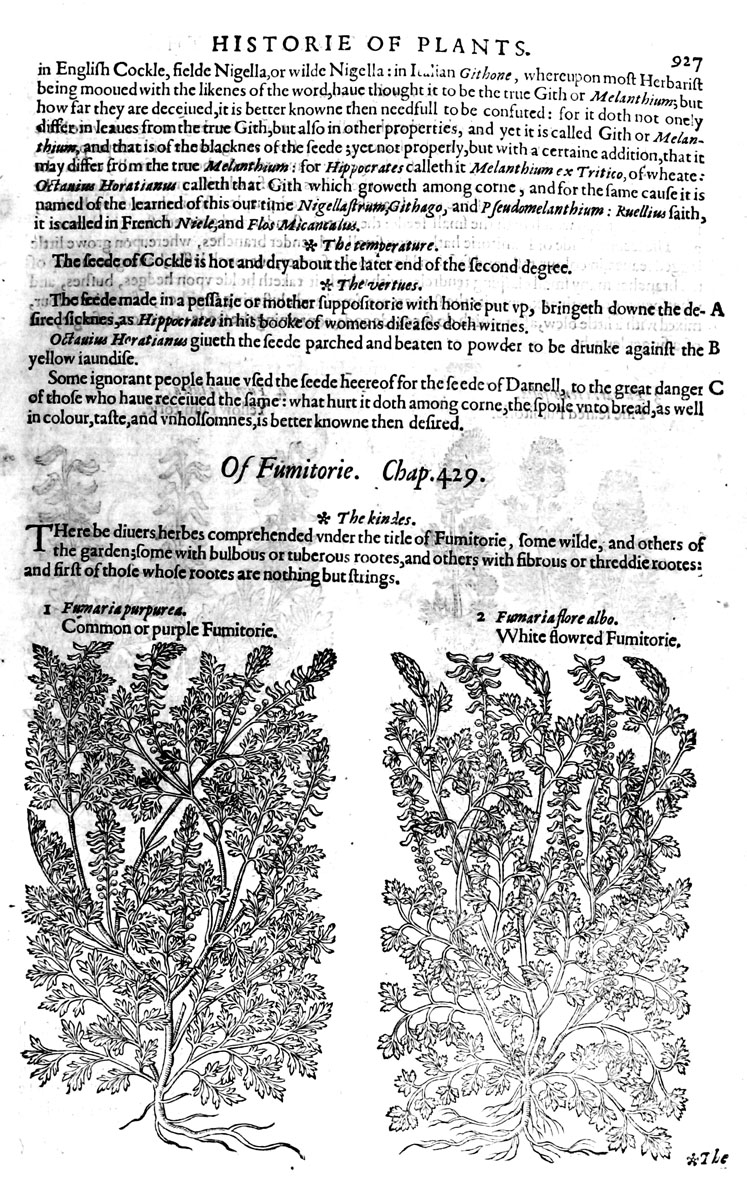 HISTORIE OF PLANTS.
927
in Engliſh Cockle, fielde Nigella, or wilde Nigella: in Githone, whereupon moſt Herbariſt
being mooued with the likenes of the word, haue thought it to be the true Gith or Melanthium; but
how far they are deceiued, it is better knowne then needfull to be confuted: for it doth not onely
differ in leaues from the true Gith, but alſo in other properties, and yet it is called Gith or Melan-
thium, and that is of the blacknes of the ſeede; yet not properly, but with a certaine addition, that it
may differ from the true Melanthium: for Hippocrates calleth it Melanthium ex Tritico, of wheate:
Octauius Horatianus calleth that Gith which groweth among corne, and for the ſame cauſe it is
named of the learned of this our time Nigellaſtrum, Githago, and Pſeudomelanthium: Ruellius ſaith,
it is called in French Niele, and Flos Micancalus.
✻ The temperature.
The ſeede of Cockle is hot and dry about the later end of the ſecond degree.
✻ The vertues.
The ſeede made in a peſſarie or mother ſuppoſitorie with honie put vp, bringeth downe the de- A
ſired ſicknes, as Hippocrates in his booke of womens diſeaſes doth witnes.
Octauius Horatianus giueth the ſeede parched and beaten to powder to be drunke againſt the B
yellow iaundiſe.
Some ignorant people haue vſed the ſeede heereof for the ſeede of Darnell, to the great danger C
of thoſe who haue receiued the ſame: what hurt it doth among corne, the ſpoile vnto bread, as well
in colour, taſte, and vnholſomnes, is better knowne then deſired.
Of Fumitorie. Chap. 429.
✻ The kindes.
THere be diuers herbes comprehended vnder the title of Fumitorie, ſome wilde, and others of
the garden; ſome with bulbous or tuberous rootes, and others with fibrous or threddie rootes:
and firſt of thoſe whoſe rootes are nothing but ſtrings.
1 Fumaria purpurea.
Common or purple Fumitorie.
2 Fumaria flore albo.
White flowred Fumitorie.
✻ The